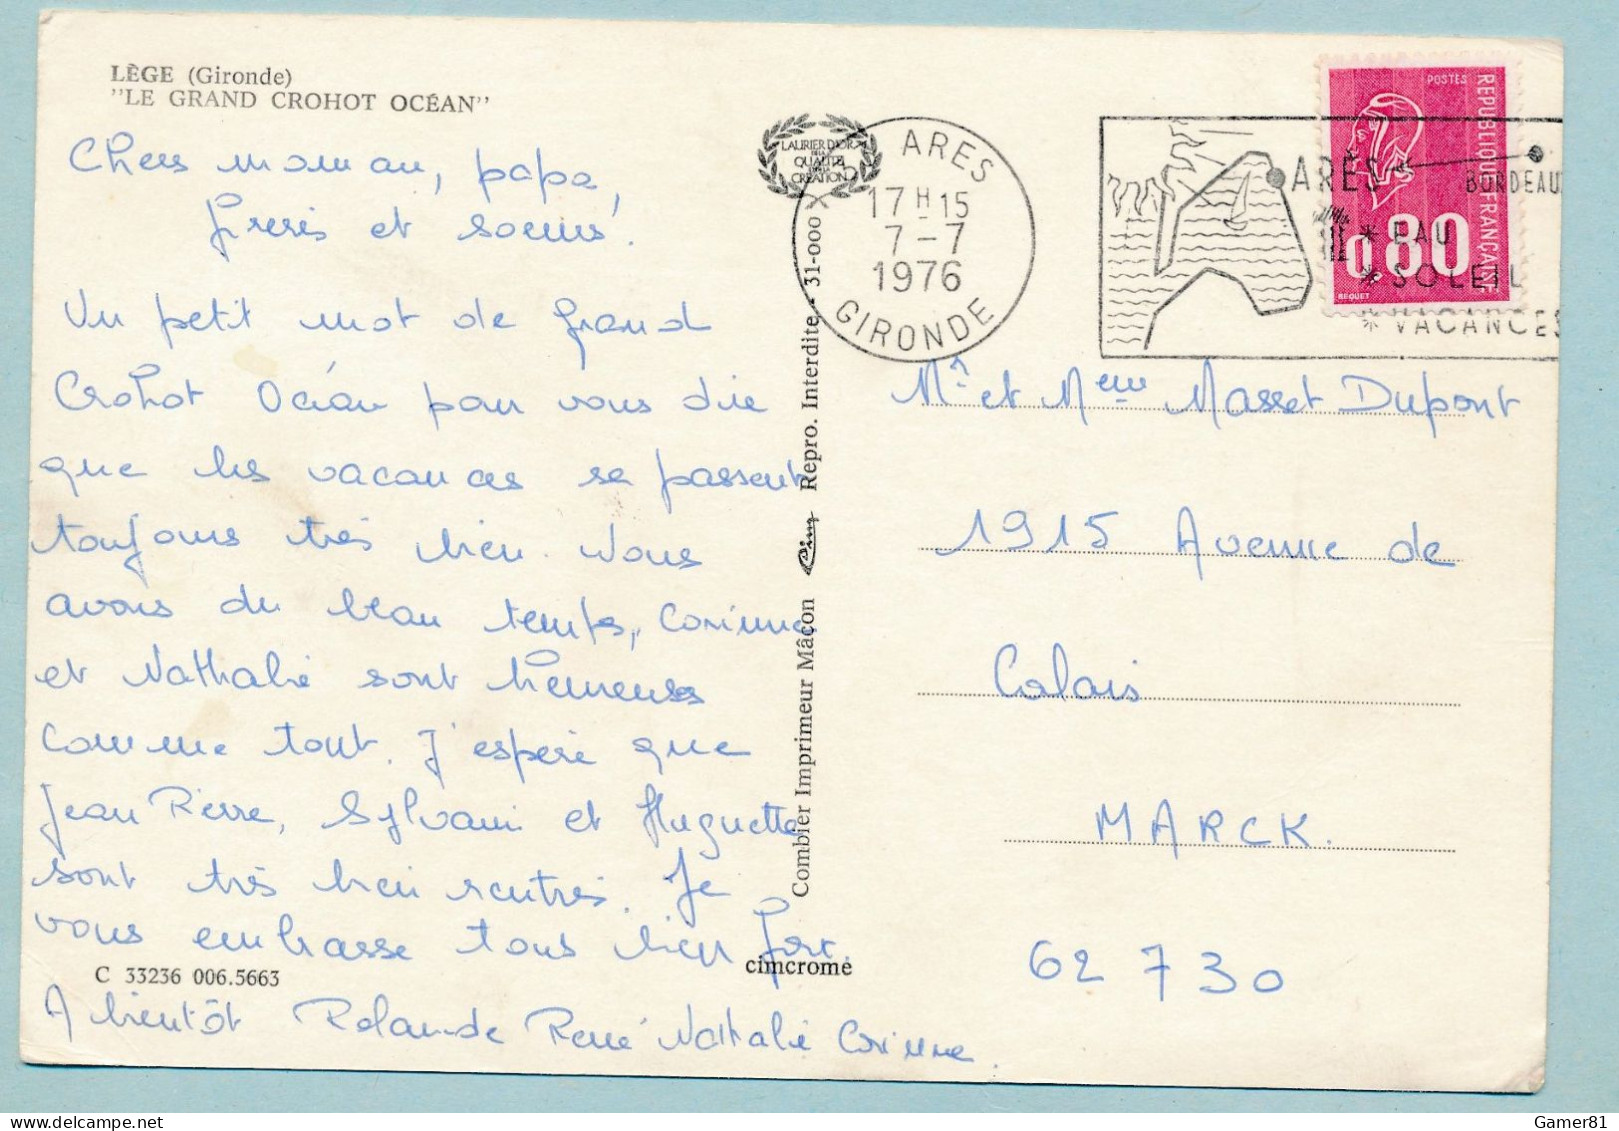 LÈGE (Gironde)
"LE GRAND CROHOT OCÉAN"
Chers maman, papa,
freres et soeurs.
Un petit mot de grand
Crohot Océan pour vous dire
que les vacances se passent
toujours très bien. Nous
avons du beau temps, Corinne
et Nathalie sont heureuses
comme tout. J'espère que
Jean Pierre, Sylvain et Huguette
sont très bien rentrés. Je
vous embrasse tous bien fort.
C 33236 006.5663
cimcrome
A bientôt Rolande René Nathalie Corinne
LAURIER D'OR
DE LA
QUALITÉ
DE LA
CRÉATION
Combier Imprimeur Mâcon Cim Repro. Interdite - 31-000
ARES
17 H 15
7-7
1976
GIRONDE
ARÈS
BORDEAUX
* EAU
* SOLEIL
* VACANCES
POSTES
REPUBLIQUE FRANÇAISE
0,80
BEQUET
Mr et Mme Masset Dupont
1915 Avenue de
Calais
MARCK.
62 730
Gamer81